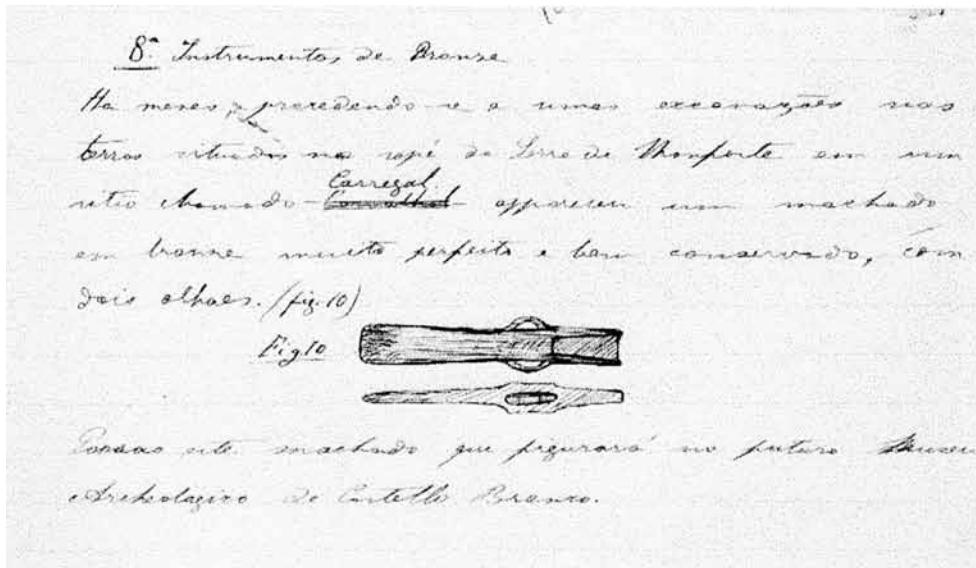 8.ª Instrumentos de Bronze
Ha mezes, procedendo-se a umas excavações nas
terras situadas no sopé da Serra de Monforte em um
sitio chamado Carregal appareceu um machado
em bronze muito perfeito e bem conservado, com
dois olhaes. (fig. 10)
Fig 10
este machado que figurará no futuro Museu
Archeologico de Castello Branco.